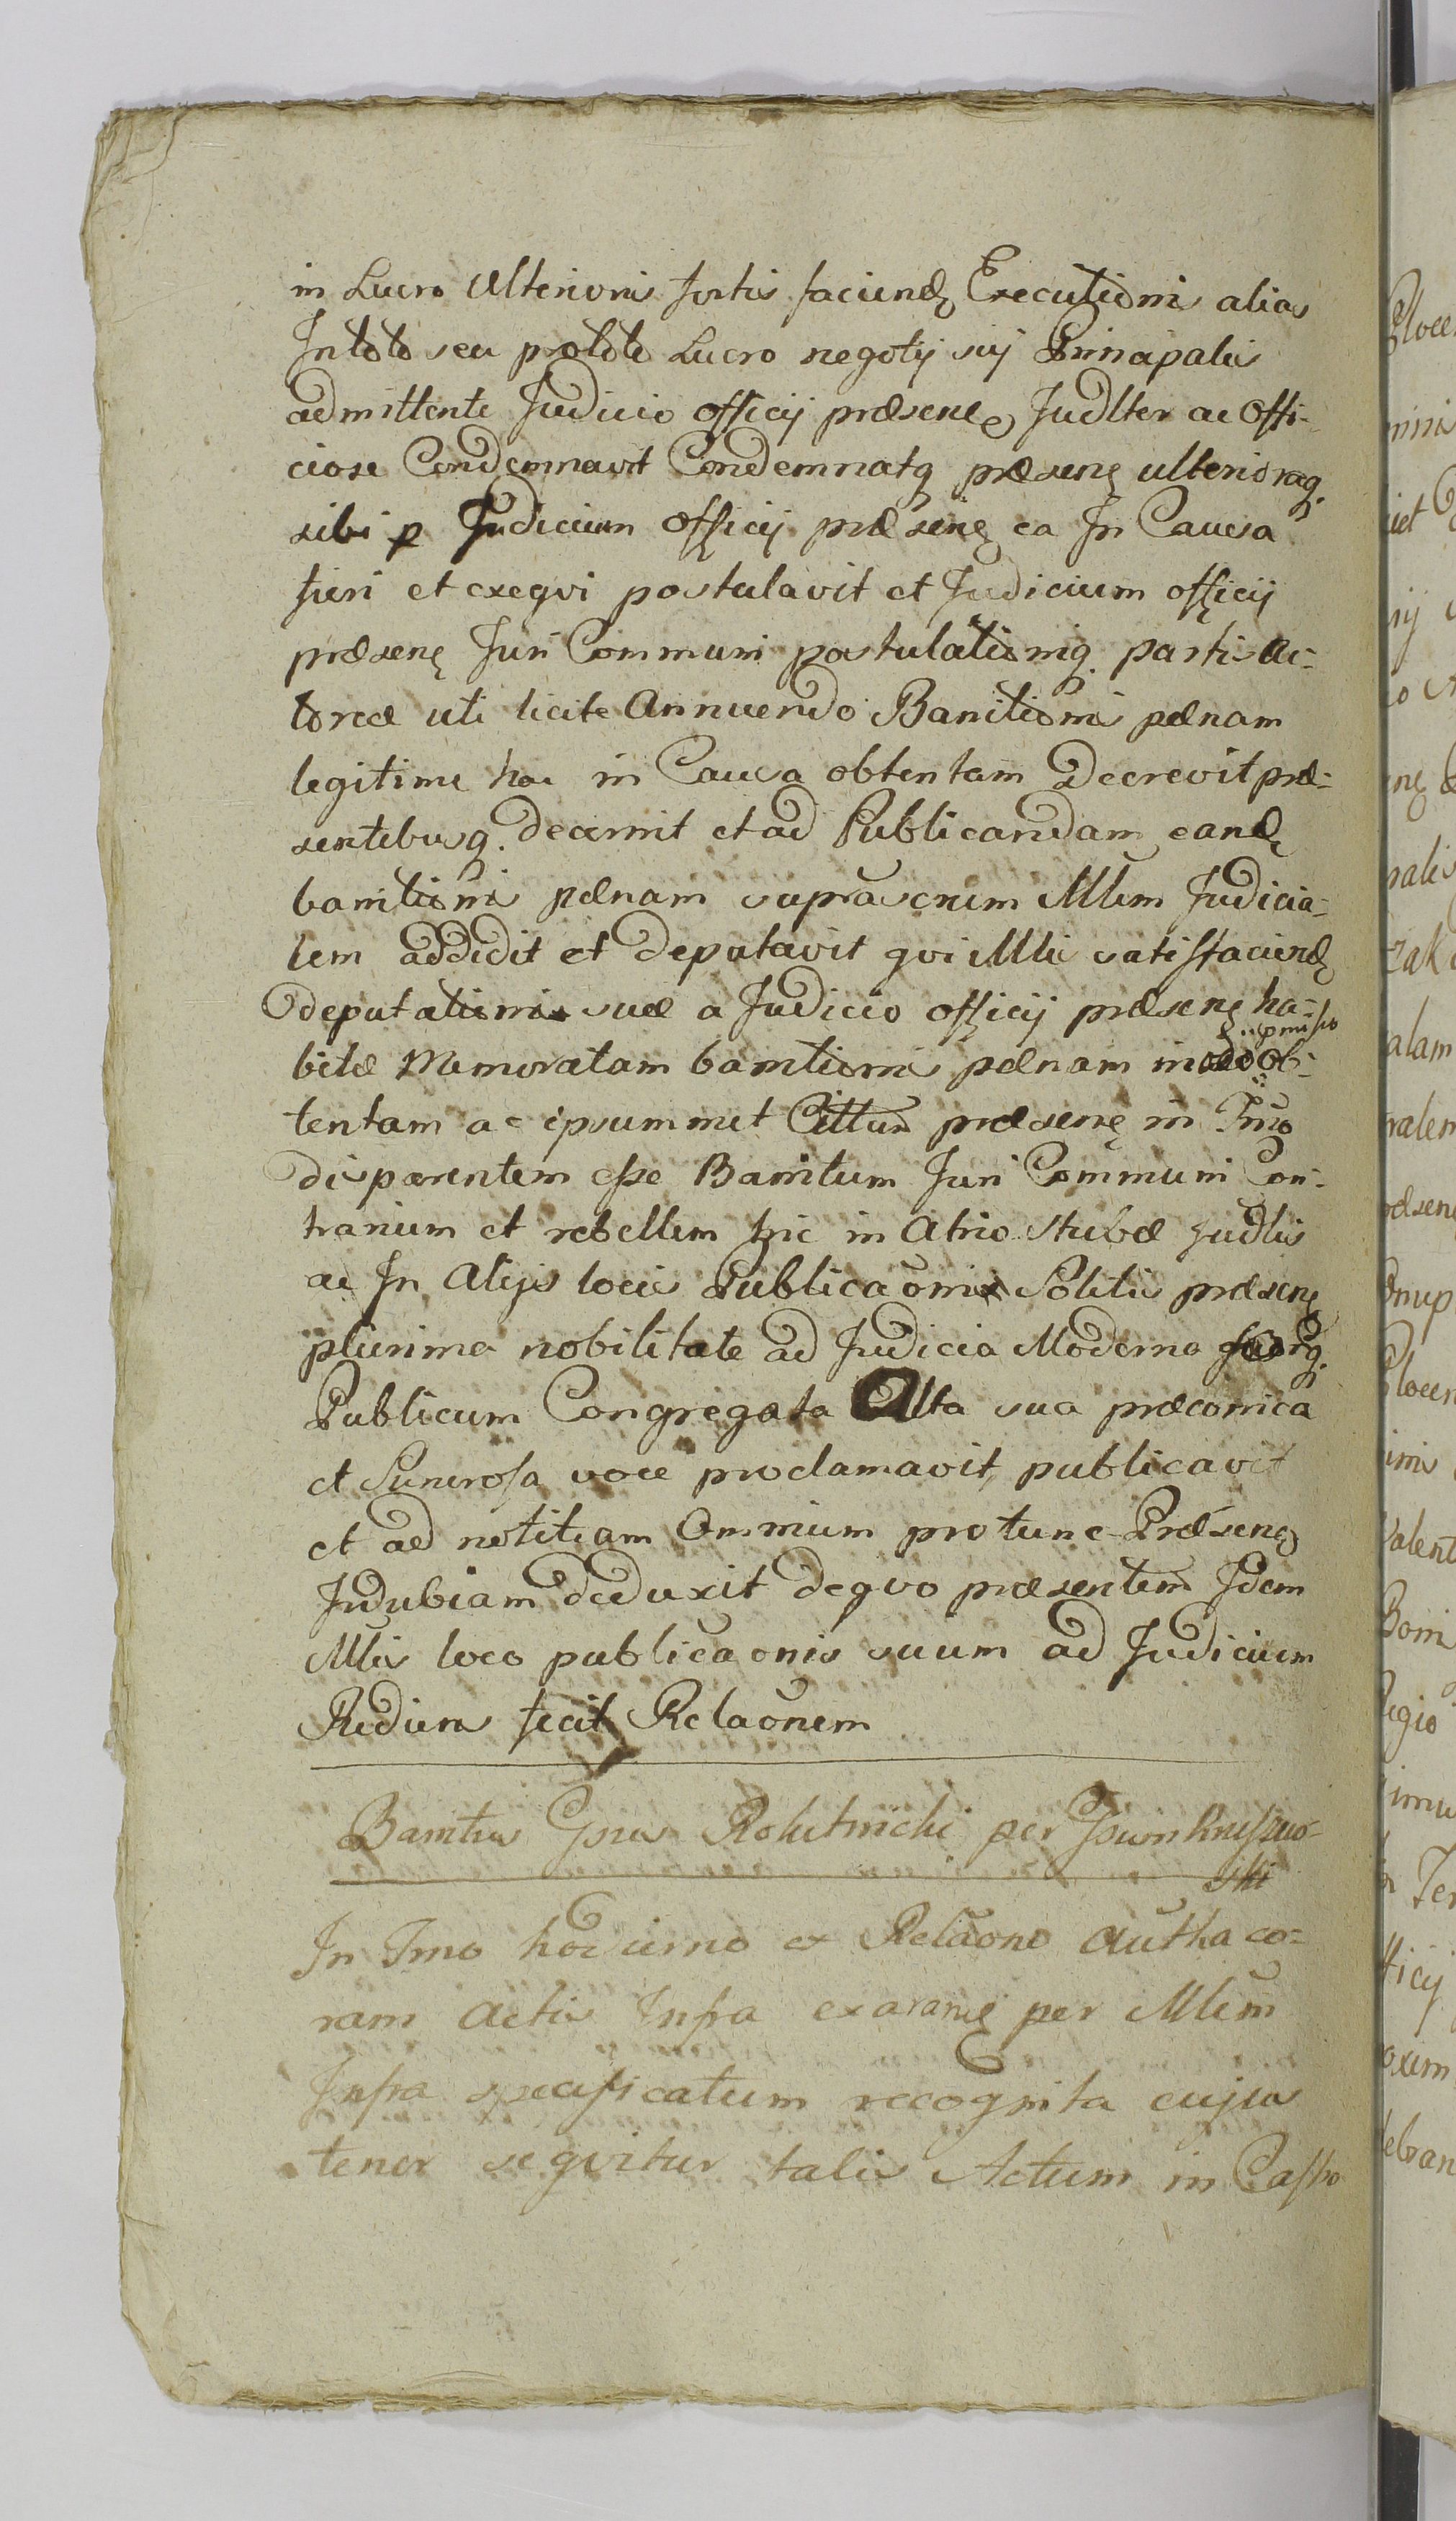 in Lucro Ulterioris sortis faciendę Executionis alias
In toto seu pro toto Lucro negotij sui Principalis
admittente Judicio officij præsenę Judlter ac Offi-
ciose Condemnavit Condemnatq præsenę ulterioraq.
sibi p Judicium Officij præsenę ea In Causa
fieri et exeqvi postulavit et Judicium officij
præsenę Juri Communi postulationiq. partis Ac-
toreæ uti licite Annuendo Banitionis pænam
legitime hac in Causa obtentam Decrevit præ-
sentibusq. decernit et ad Publicandam eandę
banitionis pænam suprascrium Mlem Judicia-
lem addidit et deputavit qvi Mlis satisfaciendę
deputationi suæ a Judicio officij præsenę ha-
bitæ Memoratam banitionis pænam modo præmisso ob-
tentam ac ipsummet Cittum præsenę in Tmo
disparentem esse Banitum Juri Communi Con-
trarium et rebellem hic in Atrio Stubæ Judlis
ac In Alijs locis Publicaōnis Solitis præsenę
plurima nobilitate ad Judicia Moderna
Publicum Congregata Alta sua præconica
et Sonorosa voce proclamavit, publicavit
et ad notitiam Omnium protunc Præsenę
Indubiam deduxit deqvo præsentem Idem
Mlis loco publicaonis suum ad Judicium
Rediens fecit Relaōnem
Banitus Gsus Rokitnicki per Gsum
ski
In Tmo hodierno ex Relaōne Autha co-
ram Actis Infra exaranę per Mlem
Infra specificatum recognita cujus
tenor seqvitur talis Actum in Castro